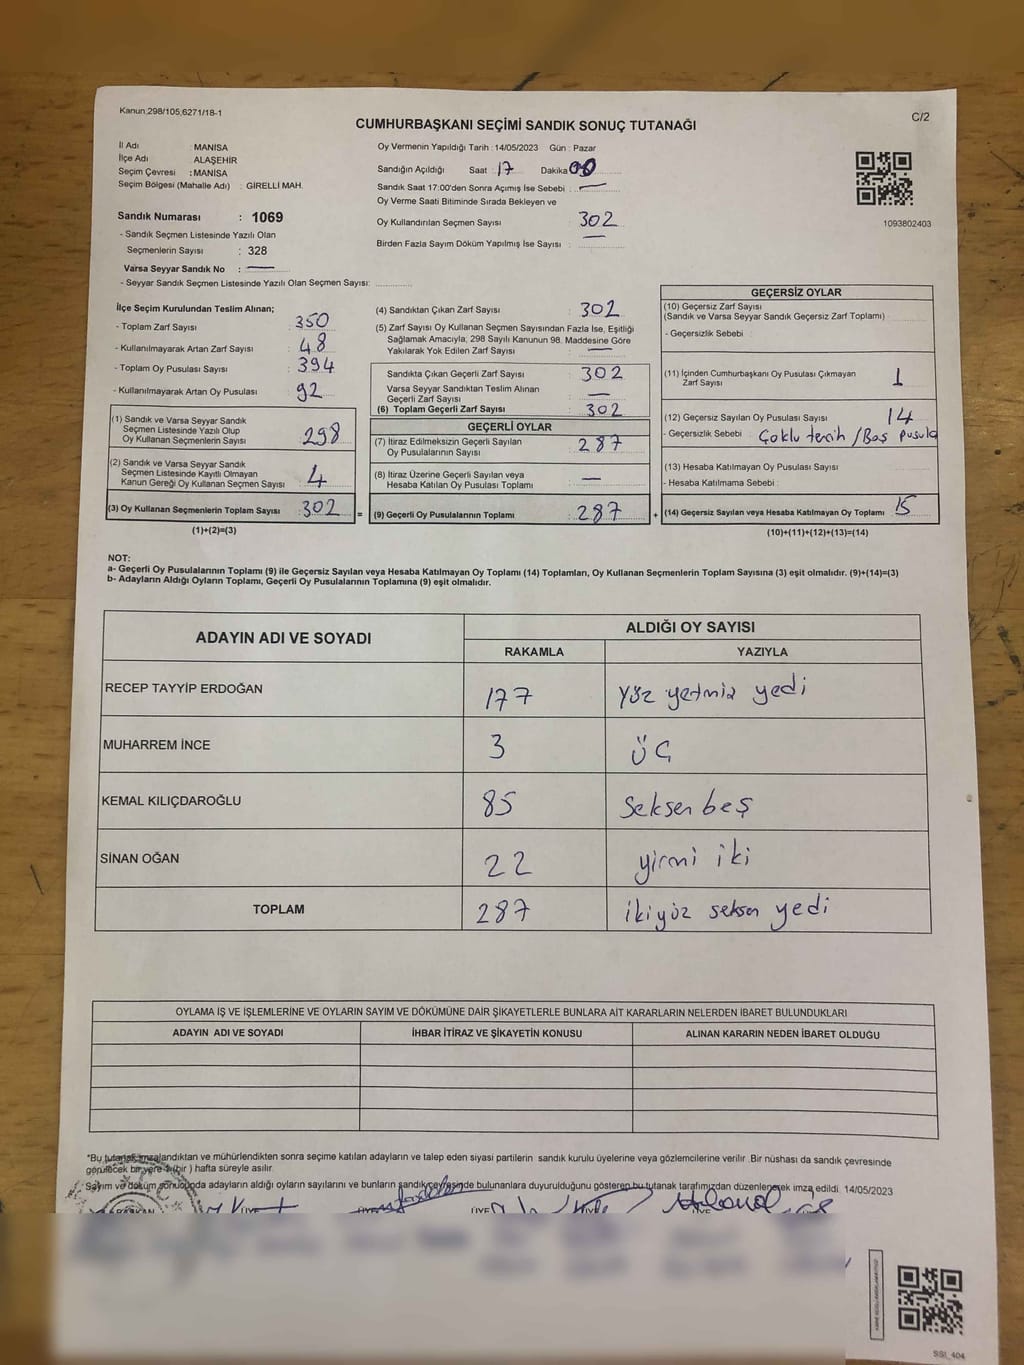 Kanun:298/105,6271/18-1
C/2
CUMHURBAŞKANI SEÇİMİ SANDIK SONUÇ TUTANAĞI
İl Adı : MANİSA
İlçe Adı ALAŞEHİR
Seçim Çevresi : MANİSA
Seçim Bölgesi (Mahalle Adı) : GİRELLİ MAH.
Sandık Numarası : 1069
- Sandık Seçmen Listesinde Yazılı Olan
Seçmenlerin Sayısı : 328
Varsa Seyyar Sandık No : —
- Seyyar Sandık Seçmen Listesinde Yazılı Olan Seçmen Sayısı:
Oy Vermenin Yapıldığı Tarih : 14/05/2023 Gün : Pazar
Sandığın Açıldığı Saat : 17 Dakika 00
Sandık Saat 17:00'den Sonra Açımış İse Sebebi : —
Oy Verme Saati Bitiminde Sırada Bekleyen ve
Oy Kullandırılan Seçmen Sayısı : 302
Birden Fazla Sayım Döküm Yapılmış İse Sayısı : —
1093802403
İlçe Seçim Kurulundan Teslim Alınan;
- Toplam Zarf Sayısı : 350
- Kullanılmayarak Artan Zarf Sayısı : 48
- Toplam Oy Pusulası Sayısı : 394
- Kullanılmayarak Artan Oy Pusulası : 92
(1) Sandık ve Varsa Seyyar Sandık
Seçmen Listesinde Yazılı Olup
Oy Kullanan Seçmenlerin Sayısı : 298
(2) Sandık ve Varsa Seyyar Sandık
Seçmen Listesinde Kayıtlı Olmayan
Kanun Gereği Oy Kullanan Seçmen Sayısı : 4
(3) Oy Kullanan Seçmenlerin Toplam Sayısı : 302
(1)+(2)=(3)
(4) Sandıktan Çıkan Zarf Sayısı : 302
(5) Zarf Sayısı Oy Kullanan Seçmen Sayısından Fazla İse, Eşitliği
Sağlamak Amacıyla; 298 Sayılı Kanunun 98. Maddesine Göre
Yakılarak Yok Edilen Zarf Sayısı : —
Sandıkta Çıkan Geçerli Zarf Sayısı : 302
Varsa Seyyar Sandıktan Teslim Alınan
Geçerli Zarf Sayısı : —
(6) Toplam Geçerli Zarf Sayısı : 302
GEÇERLİ OYLAR
(7) İtiraz Edilmeksizin Geçerli Sayılan
Oy Pusulalarının Sayısı : 287
(8) İtiraz Üzerine Geçerli Sayılan veya
Hesaba Katılan Oy Pusulası Toplamı : —
= (9) Geçerli Oy Pusulalarının Toplamı : 287
GEÇERSİZ OYLAR
(10) Geçersiz Zarf Sayısı
(Sandık ve Varsa Seyyar Sandık Geçersiz Zarf Toplamı)
- Geçersizlik Sebebi :
(11) İçinden Cumhurbaşkanı Oy Pusulası Çıkmayan
Zarf Sayısı 1
(12) Geçersiz Sayılan Oy Pusulası Sayısı 14
- Geçersizlik Sebebi : Çoklu tercih / Boş pusula
(13) Hesaba Katılmayan Oy Pusulası Sayısı
- Hesaba Katılmama Sebebi :
+ (14) Geçersiz Sayılan veya Hesaba Katılmayan Oy Toplamı 15
(10)+(11)+(12)+(13)=(14)
NOT:
a- Geçerli Oy Pusulalarının Toplamı (9) ile Geçersiz Sayılan veya Hesaba Katılmayan Oy Toplamı (14) Toplamları, Oy Kullanan Seçmenlerin Toplam Sayısına (3) eşit olmalıdır. (9)+(14)=(3)
b- Adayların Aldığı Oyların Toplamı, Geçerli Oy Pusulalarının Toplamına (9) eşit olmalıdır.
ADAYIN ADI VE SOYADI ALDIĞI OY SAYISI
RAKAMLA YAZIYLA
RECEP TAYYİP ERDOĞAN 177 Yüz yetmiş yedi
MUHARREM İNCE 3 ÜÇ
KEMAL KILIÇDAROĞLU 85 Seksen beş
SİNAN OĞAN 22 yirmi iki
TOPLAM 287 ikiyüz seksen yedi
OYLAMA İŞ VE İŞLEMLERİNE VE OYLARIN SAYIM VE DÖKÜMÜNE DAİR ŞİKAYETLERLE BUNLARA AİT KARARLARIN NELERDEN İBARET BULUNDUKLARI
ADAYIN ADI VE SOYADI İHBAR İTİRAZ VE ŞİKAYETİN KONUSU ALINAN KARARIN NEDEN İBARET OLDUĞU
*Bu tutanak imzalandıktan ve mühürlendikten sonra seçime katılan adayların ve talep eden siyasi partilerin sandık kurulu üyelerine veya gözlemcilerine verilir. Bir nüshası da sandık çevresinde
görülecek bir yere 1 (bir ) hafta süreyle asılır.
Sayım ve döküm sonucunda adayların aldığı oyların sayılarını ve bunların sandık çevresinde bulunanlara duyurulduğunu gösteren bu tutanak tarafımızdan düzenlenerek imza edildi. 14/05/2023
BAŞKAN ÜYE ÜYE ÜYE ÜYE
SSI_404